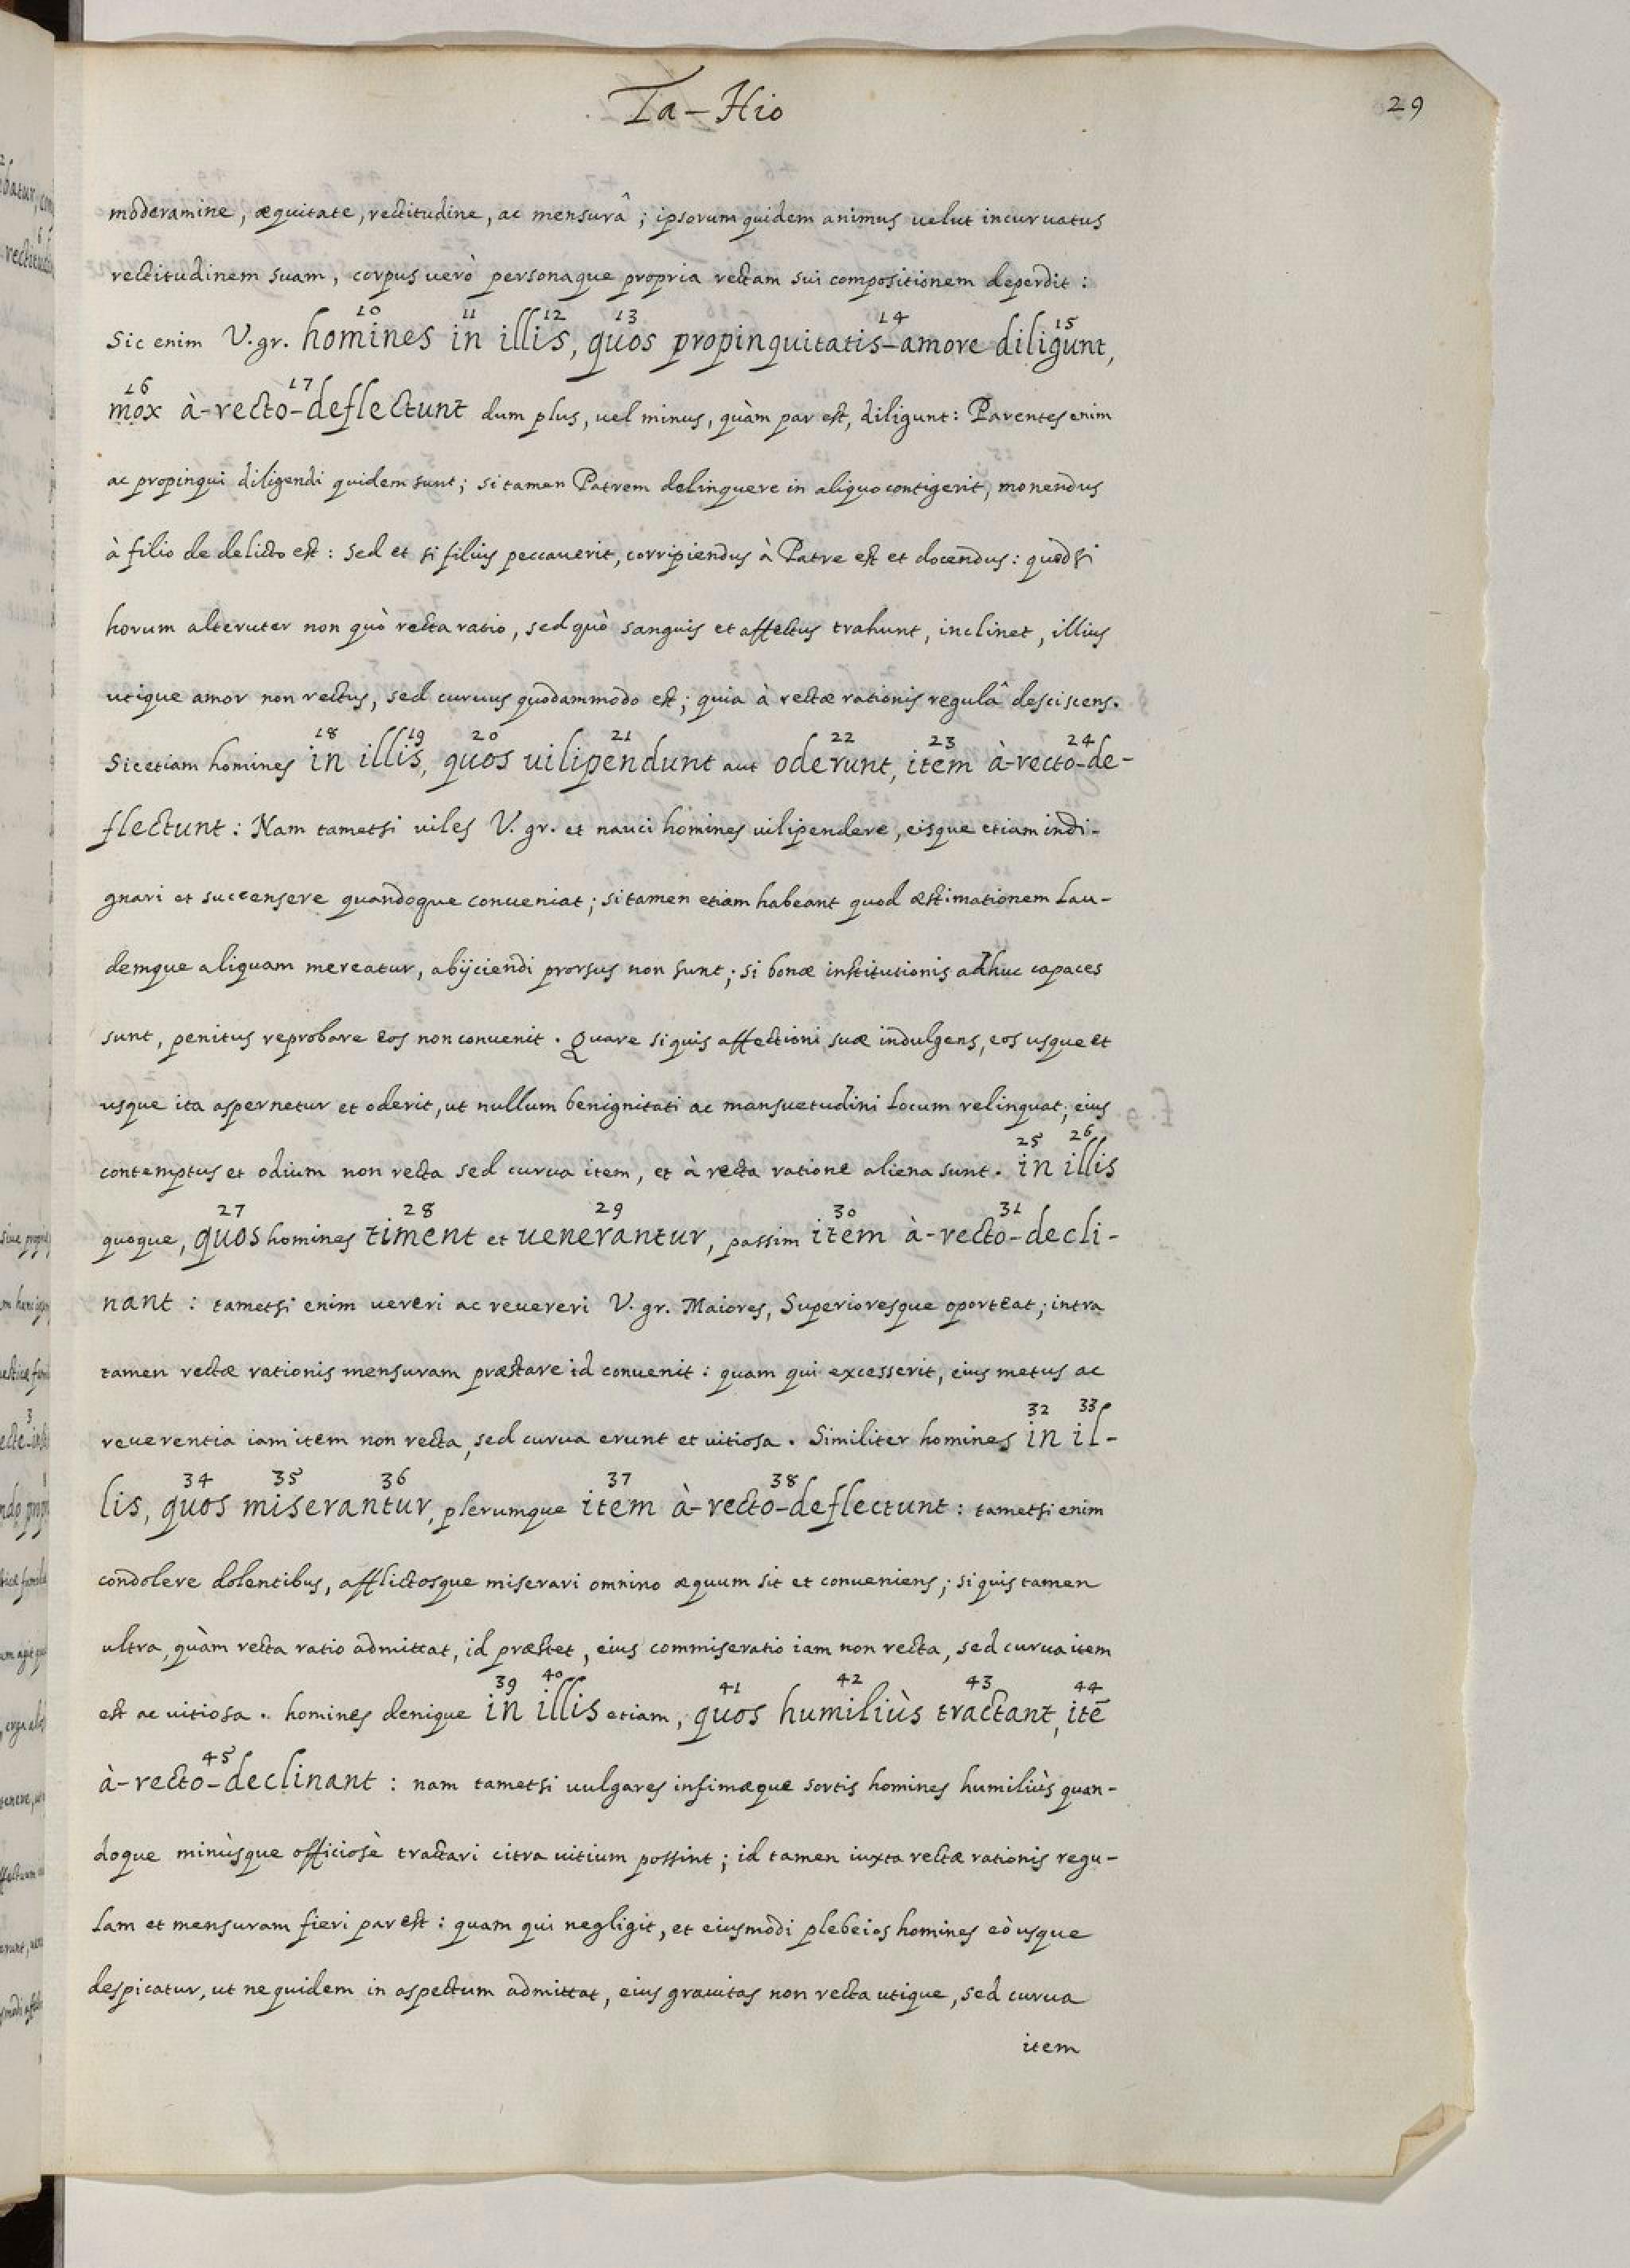 Ta-Hio
29
moderamine, æquitate, rectitudine, ac mensurâ; ipsorum quidem animus uelut incuruatus
rectitudinem suam, corpus uerò personaque propria rectam sui compositionem deperdit:
10 11 12 13 14 15
Sic enim V.gr. homines in illis, quos propinquitatis-amore diligunt,
16 17
mox à-recto-deflectunt dum plus, uel minus, quàm par est, diligunt: Parentes enim
ac propinqui diligendi quidem sunt; si tamen Patrem delinquere in aliquo contigerit, monendus
à filio de delicto est: sed et si filius peccauerit, corripiendus à Patre est et docendus: quòd si
horum alteruter non quò recta ratio, sed quò sanguis et affectus trahunt, inclinet, illius
utique amor non rectus, sed curuus quodammodo est; quia à rectæ rationis regulâ desciscens.
18 19 20 21 22 23 24
Sic etiam homines in illis, quos uilipendunt aut oderunt, item à-recto-de-
flectunt: Nam tametsi uiles V. gr. et nauci homines uilipendere, eisque etiam indi-
gnari et succensere quandoque conueniat; si tamen etiam habeant quod æstimationem Lau-
demque aliquam mereatur, abijciendi prorsus non sunt; si bonæ institutionis adhuc capaces
sunt, penitus reprobare eos non conuenit. Quare si quis affectioni suæ indulgens, eos usque et
usque ita aspernetur et oderit, ut nullum benignitati ac mansuetudini Locum relinquat; eius
25 26
contemptus et odium non recta sed curua item, et à recta ratione aliena sunt. in illis
27 28 29 30 31
quoque, quos homines timent et uenerantur, passim item à-recto-decli-
nant: tametsi enim uereri ac reuereri V. gr. Maiores, Superioresque oporteat; intra
tamen rectæ rationis mensuram præstare id conuenit: quam qui excesserit, eius metus ac
32 33
reuerentia iam item non recta, sed curua erunt et uitiosa. Similiter homines in il-
34 35 36 37 38
lis, quos miserantur, plerumque item à-recto-deflectunt: tametsi enim
condolere dolentibus, afflictosque miserari omnino æquum sit et conueniens; si quis tamen
ultra, quàm recta ratio admittat, id præstet, eius commiseratio iam non recta, sed curua item
39 40 41 42 43 44
est ac uitiosa. homines denique in illis etiam, quos humiliùs tractant, itē
45
à-recto-declinant: nam tametsi uulgares infimæque sortis homines humiliùs quan-
doque minùsque officiosè tractari citra uitium possint; id tamen iuxta rectæ rationis regu-
Lam et mensuram fieri par est: quam qui negligit, et eiusmodi plebeios homines eòusque
despicatur, ut ne quidem in aspectum admittat, eius grauitas non recta utique, sed curua
item